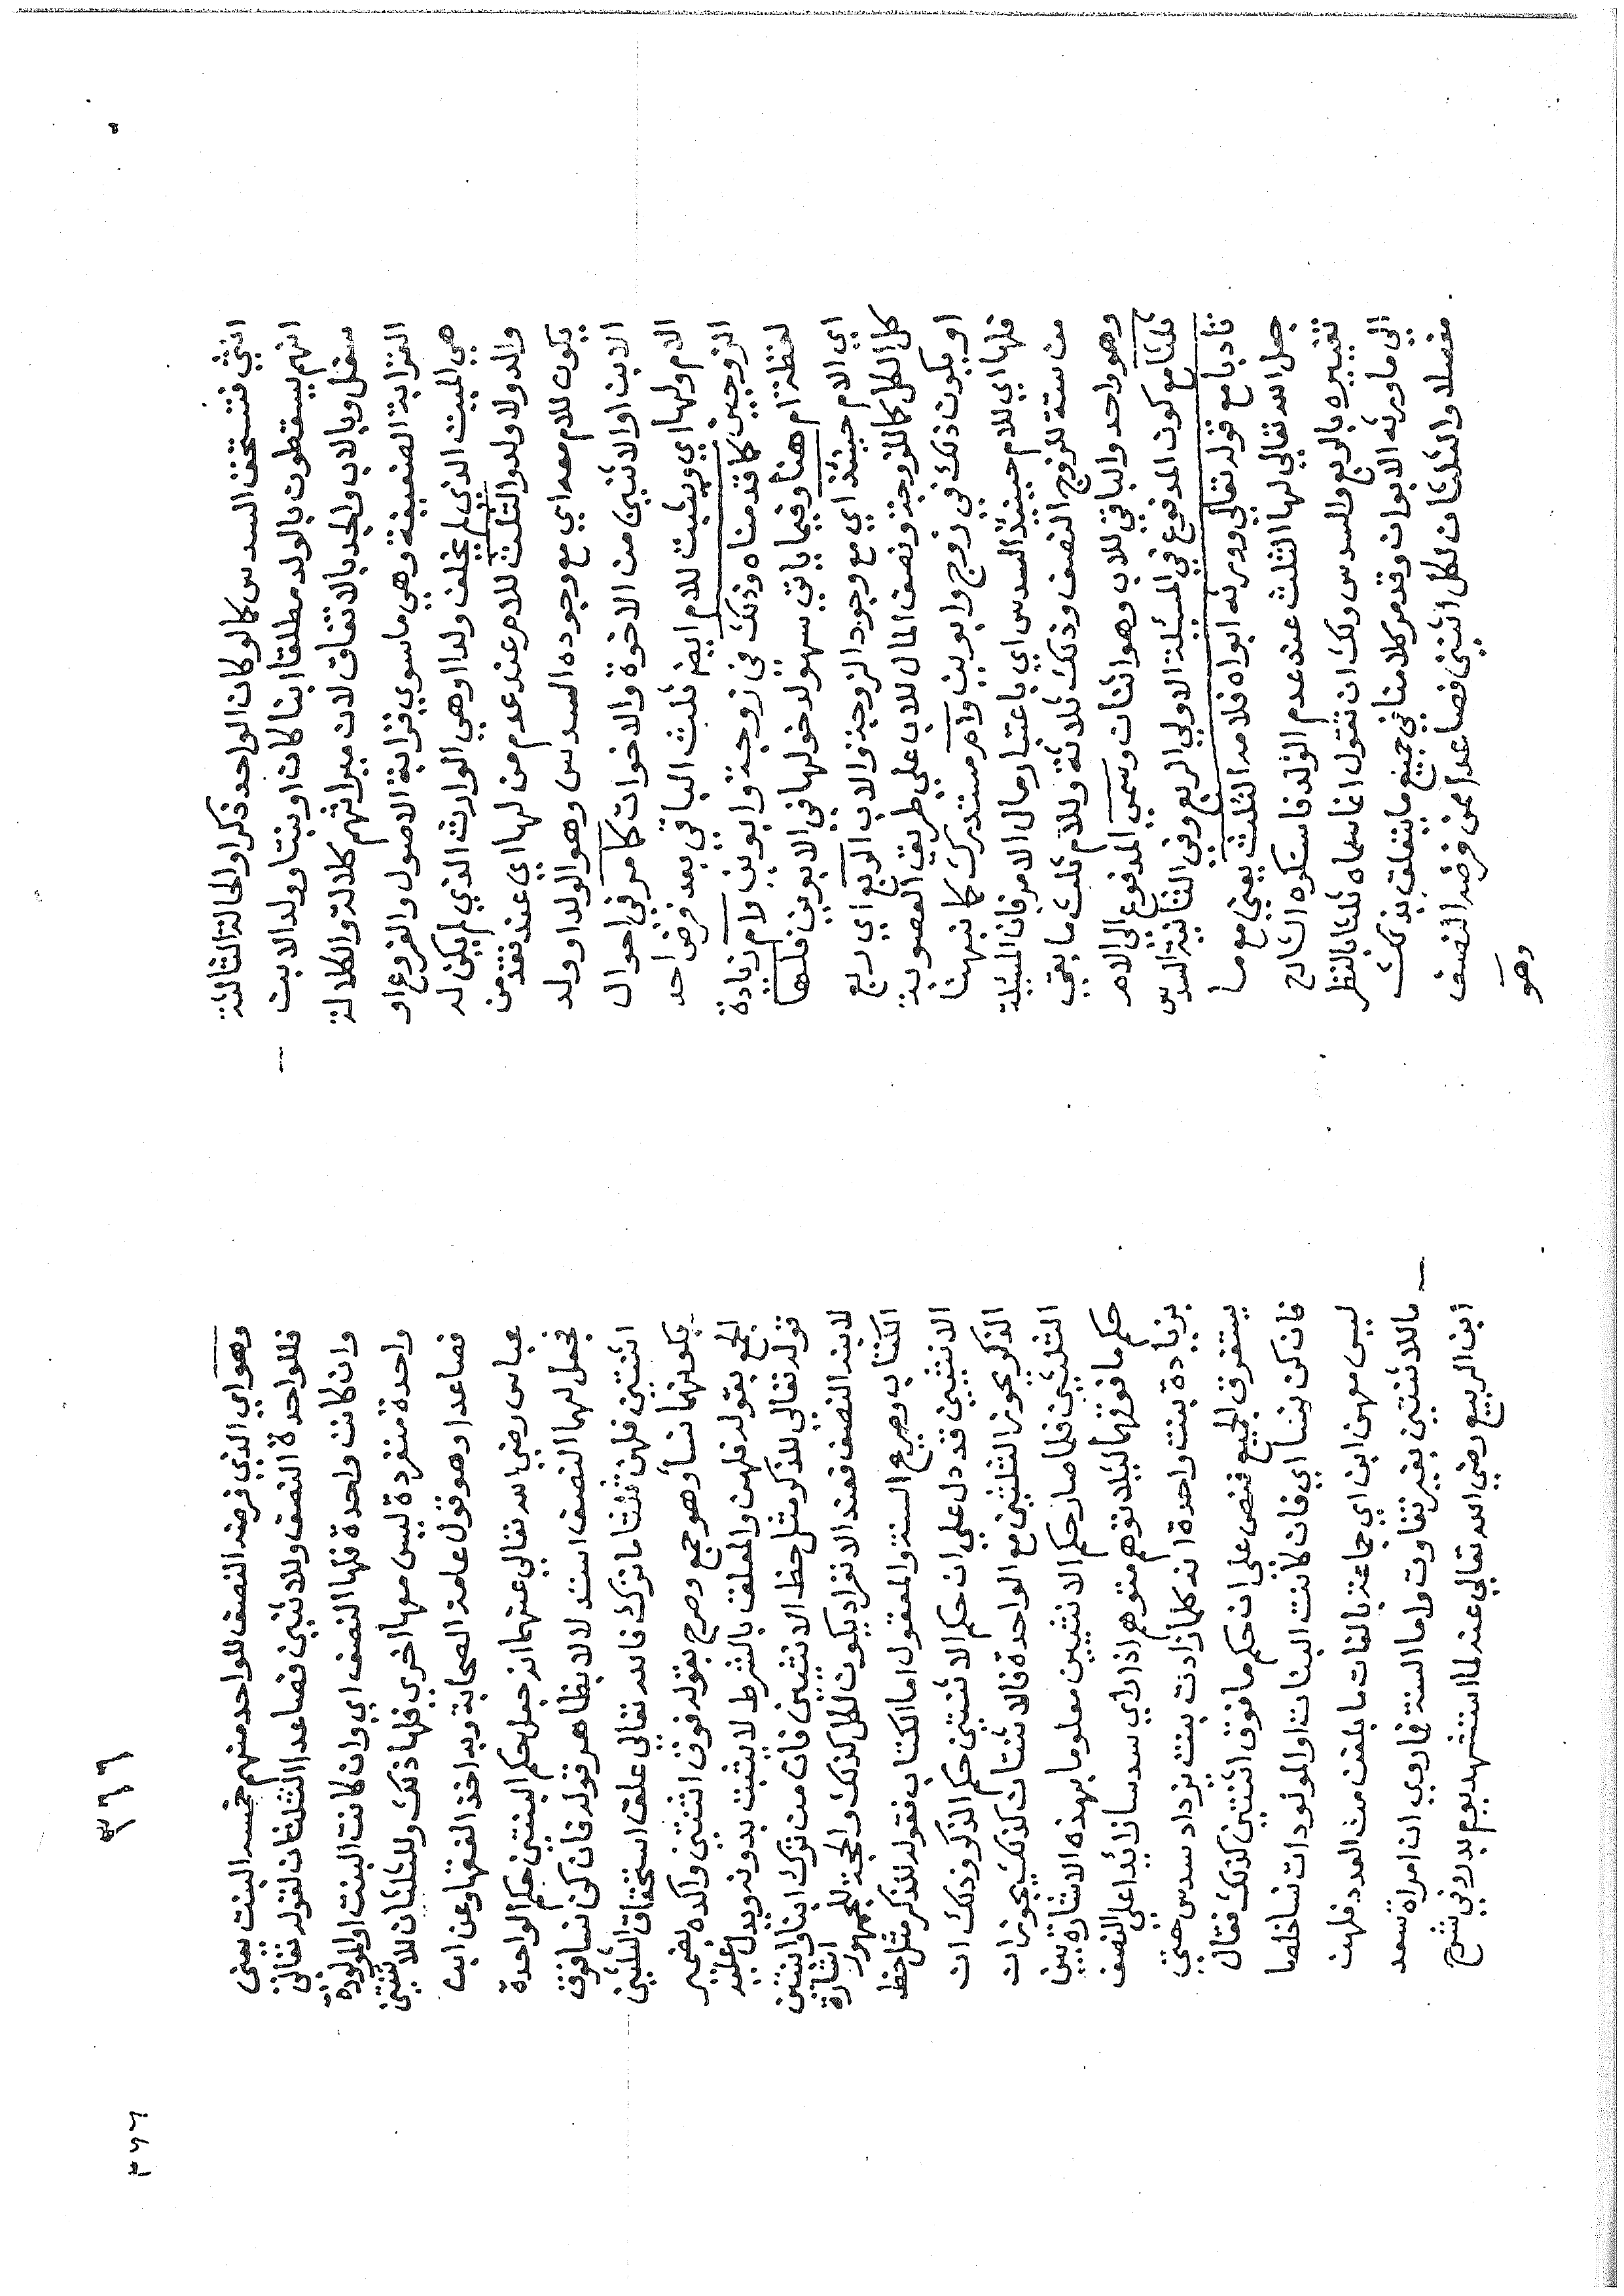 انثي فتستحق السدس كما لو كان الواحد ذكرا والحالة الثالثة
انهم يسقطون بالولد مطلقا ابنا كان او بنتا وولد الابن
سفل وبالاب والجد بالاتفاق لان ميراثهم كلالة والكلالة
القرابة الضعيفة وهي ما سوي قرابة الاصول والفروع او
هي الميت الذي لم يخلف ولدا او هي الوارث الذي لم يكن له
والد ولا ولد والثلث للام عند عدم من لها اي عند فقد من
يكون للام معه اي مع وجوده السدس وهو الولد او ولد
الابن او الاثنين من الاخوة والاخوات كما مر في احوال
الام ولها اي ويثبت للام ايضا ثلث الباقي بعد فرض احد
الزوجين كما قدمناه وذلك في زوجة وابوين وام زيادة
لفظة ام هنا وفيما ياتي سهو لدخولها في الابوين فلها
اي الام حينئذ اي مع وجود الزوجة والاب الربع اي ربع
كل الكل كما للزوجة ونصف المال للاب علي طريق العصوبة
او يكون ذلك في زوج وابوين وام مستدرك كما نبهنا
فلها اي للام حينئذ السدس اي باعتبار مال الامر فان المسئلة
من ستة للزوج النصف وذلك ثلاثة وللام ثلث ما بقي
وهو واحد والباقي للاب وهو اثنان وسمي المدفوع الي الام
ثلثا مع كون المدفوع في المسئلة الاولي الربع وفي الثانية السدس
تأدبا مع قوله تعالي وورثه ابواه فلامه الثلث يعني مع ما
جعل الله تعالي لها الثلث عند عدم الولد فاستكره الشارع
تغييره بالربع والسدس ولك ان تقول انما سماه ثلثا بالنظر
الي ما ورثه الابوان وقد مر كلامنا في جميع ما يتعلق بذلك
مفصلا والثلثان لكل اثنين فصاعدا ممن فرضه النصف
وهو
٢٦٦
٢٦٦
وهو اي الذي فرضه النصف للواحد منهم خمسة البنت يعني
فللواحدة النصف وللاثنين فصاعدا الثلثان لقوله تعالي
وان كانت واحدة فلها النصف اي وان كانت البنت او المولودة
واحدة منفردة ليس معها اخري فلها ذلك وللثلثان للاثنتين
فصاعدا وهو قول عامة الصحابة وبه اخذ الفقها وعن ابن
عباس رضي الله تعالي عنهما انه جعل حكم البنتين حكم الواحدة
فجعل لهما النصف استدلالا بظاهر قوله فان كن نسا فوق
اثنتين فلهن ثلثا ما ترك فالله تعالي علق استحقاق الثلثين
بكونهما نسأ وهو جمع وصرح بقوله فوق اثنتين واكده بضمير
الجمع بقوله فلهن والمعلق بالشرط لا يثبت بدونه ويدل عليه
قوله تعالي للذكر مثل حظ الانثيين فان من ترك ابنا وبنتين
لابنه النصف فعند الانفراد يكون للكل كذلك والحجة للجمهور اشارة
الكتاب وصريح السنة والمعقول اما الكتاب فقوله للذكر مثل حظ
الانثيين قد دل علي ان حكم الانثيين حكم الذكر وذلك ان
الذكر يحوز الثلثين مع الواحدة فالاثنتان كذلك يحوزان
الثلثين فلما صار حكم الانثيين معلوما بهذه الاشارة بين
حكم ما فوقهما لئلا يتوهم متوهم اذا راي سدسا زائدا علي النصف
بزيادة بنت واحدة انه كلما زادت بنت يزداد سدس حتي
يستغرق الجميع فنص علي ان حكم ما فوق اثنتين كذلك فقال
فان كن نسا اي فان كانت البنات او المولودات نسا خلصا
ليس معهن ابن اي جماعة بالغات ما بلغت من العدد فلهن
ما للاثنتين بغير تفاوت واما السنة فما روي ان امرأة سعد
ابن الربيع رضي الله تعالي عنه لما استشهد يوم بدر وفي شرح